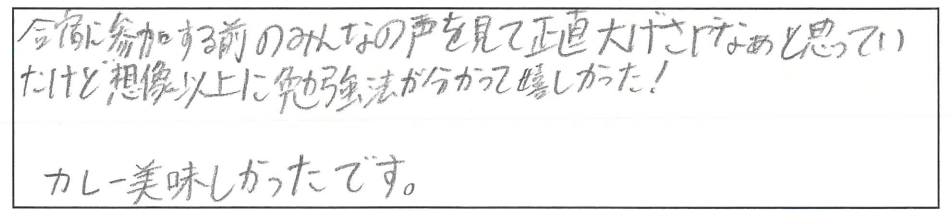 合宿に参加する前のみんなの声を見て正直大げさだなぁと思ってい
たけど想像以上に勉強法が分かって嬉しかった!
カレー美味しかったです。